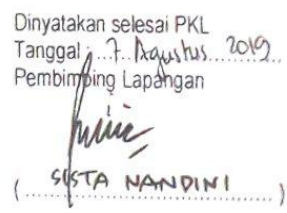 Dinyatakan selesai PKL
Tanggal : 7 Agustus 2019
Pembimbing Lapangan
( SISTA NANDINI )